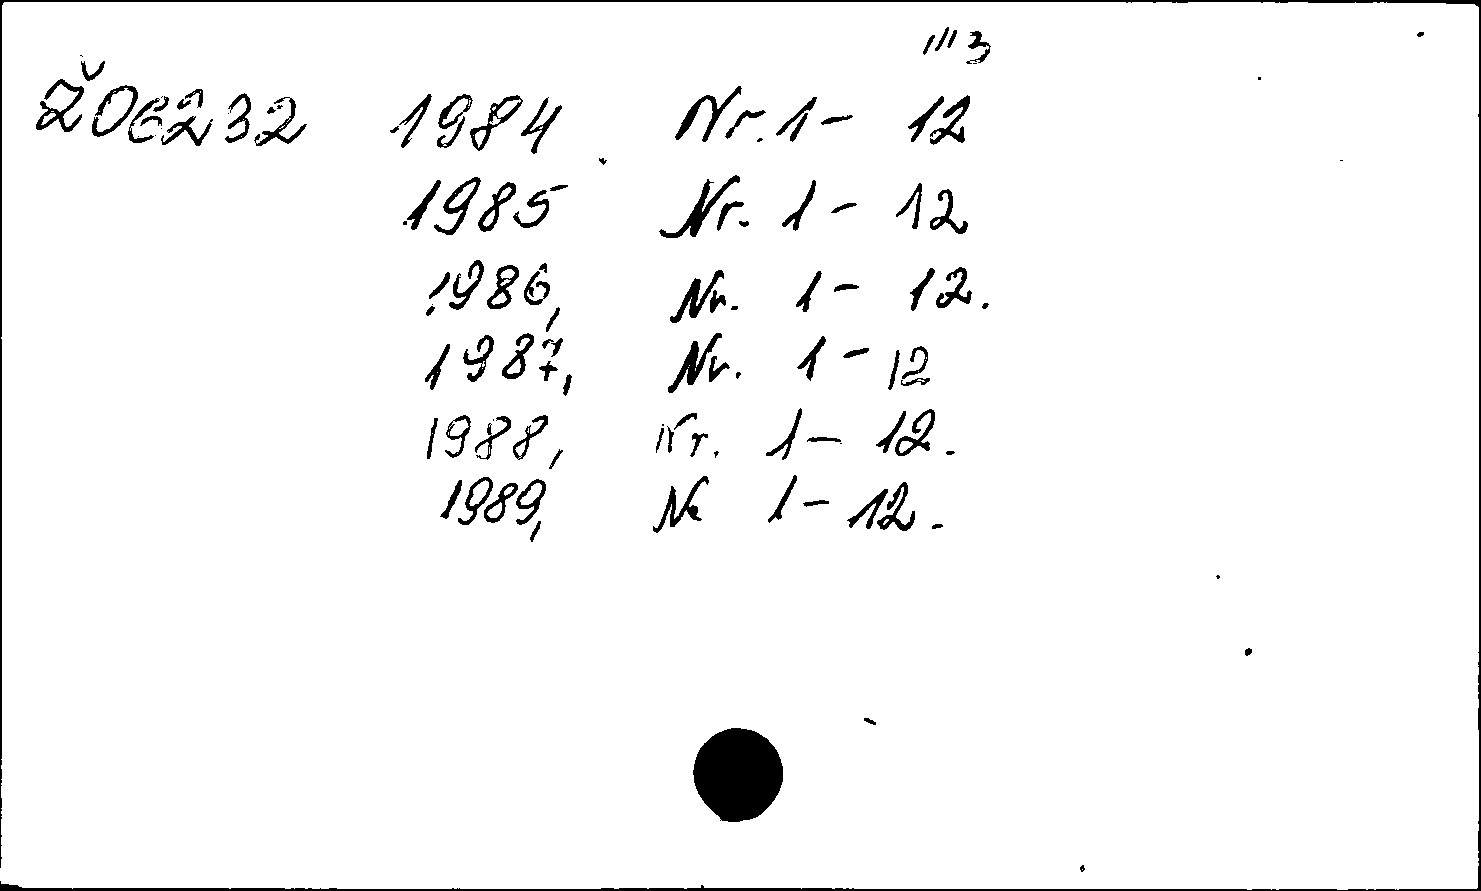 III 3
Ž06232 1984 Nr. 1- 12
1985 Nr. 1- 12
1986, Nr. 1- 12.
1987, Nr. 1- 12
1988, Nr. 1- 12.
1989, Nr 1- 12.